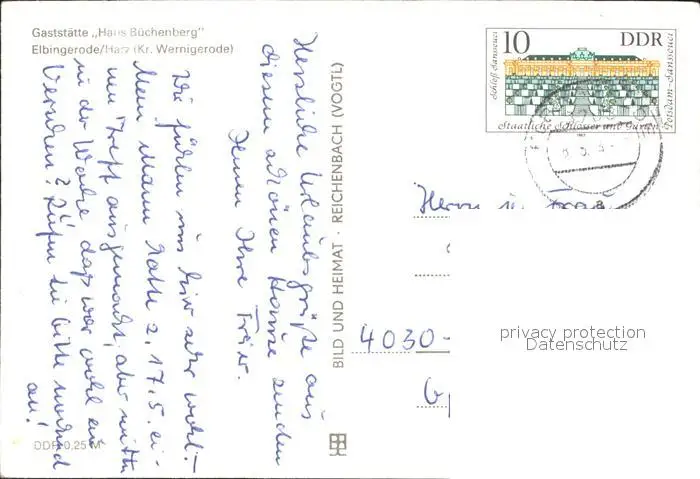 Gaststätte „Hans Büchenberg"
Elbingerode/Harz (Kr. Wernigerode)
Herzliche Urlaubsgrüße aus
diesem schönen Hause senden
Ihnen Ihre
Wir fühlen uns hier sehr wohl.
Mein Mann hatte z. 17.5. ei-
nen Treff ausgemacht, aber mitten
in der Woche, das war wohl ein
Versehen? Rufen Sie bitte nochmal
an!
DDR 0,25 M
BILD UND HEIMAT · REICHENBACH (VOGTL)
10 DDR
Schloß Sanssouci
Potsdam-Sanssouci
Staatliche Schlösser und Gärten
a
Herrn u. Frau
4030-
privacy protection
Datenschutz